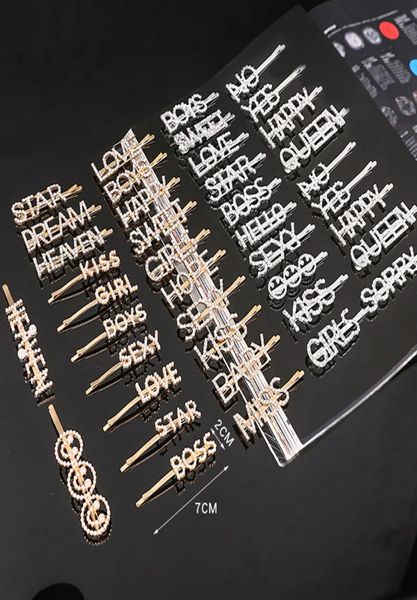 STAR
DREAM
HEAVEN
KISS
GIRL
BOYS
SEXY
LOVE
STAR
BOSS
LOVE
BOYS
HAPPY
SWEET
GIRL
SEXY
KISS
BABY
MISS
BOYS
SWEET
LOVE
STAR
BOSS
HELLO
SEXY
KISS
GIRLS
NO
YES
HAPPY
QUEEN
NO
YES
HAPPY
QUEEN
SORRY
2CM
7CM